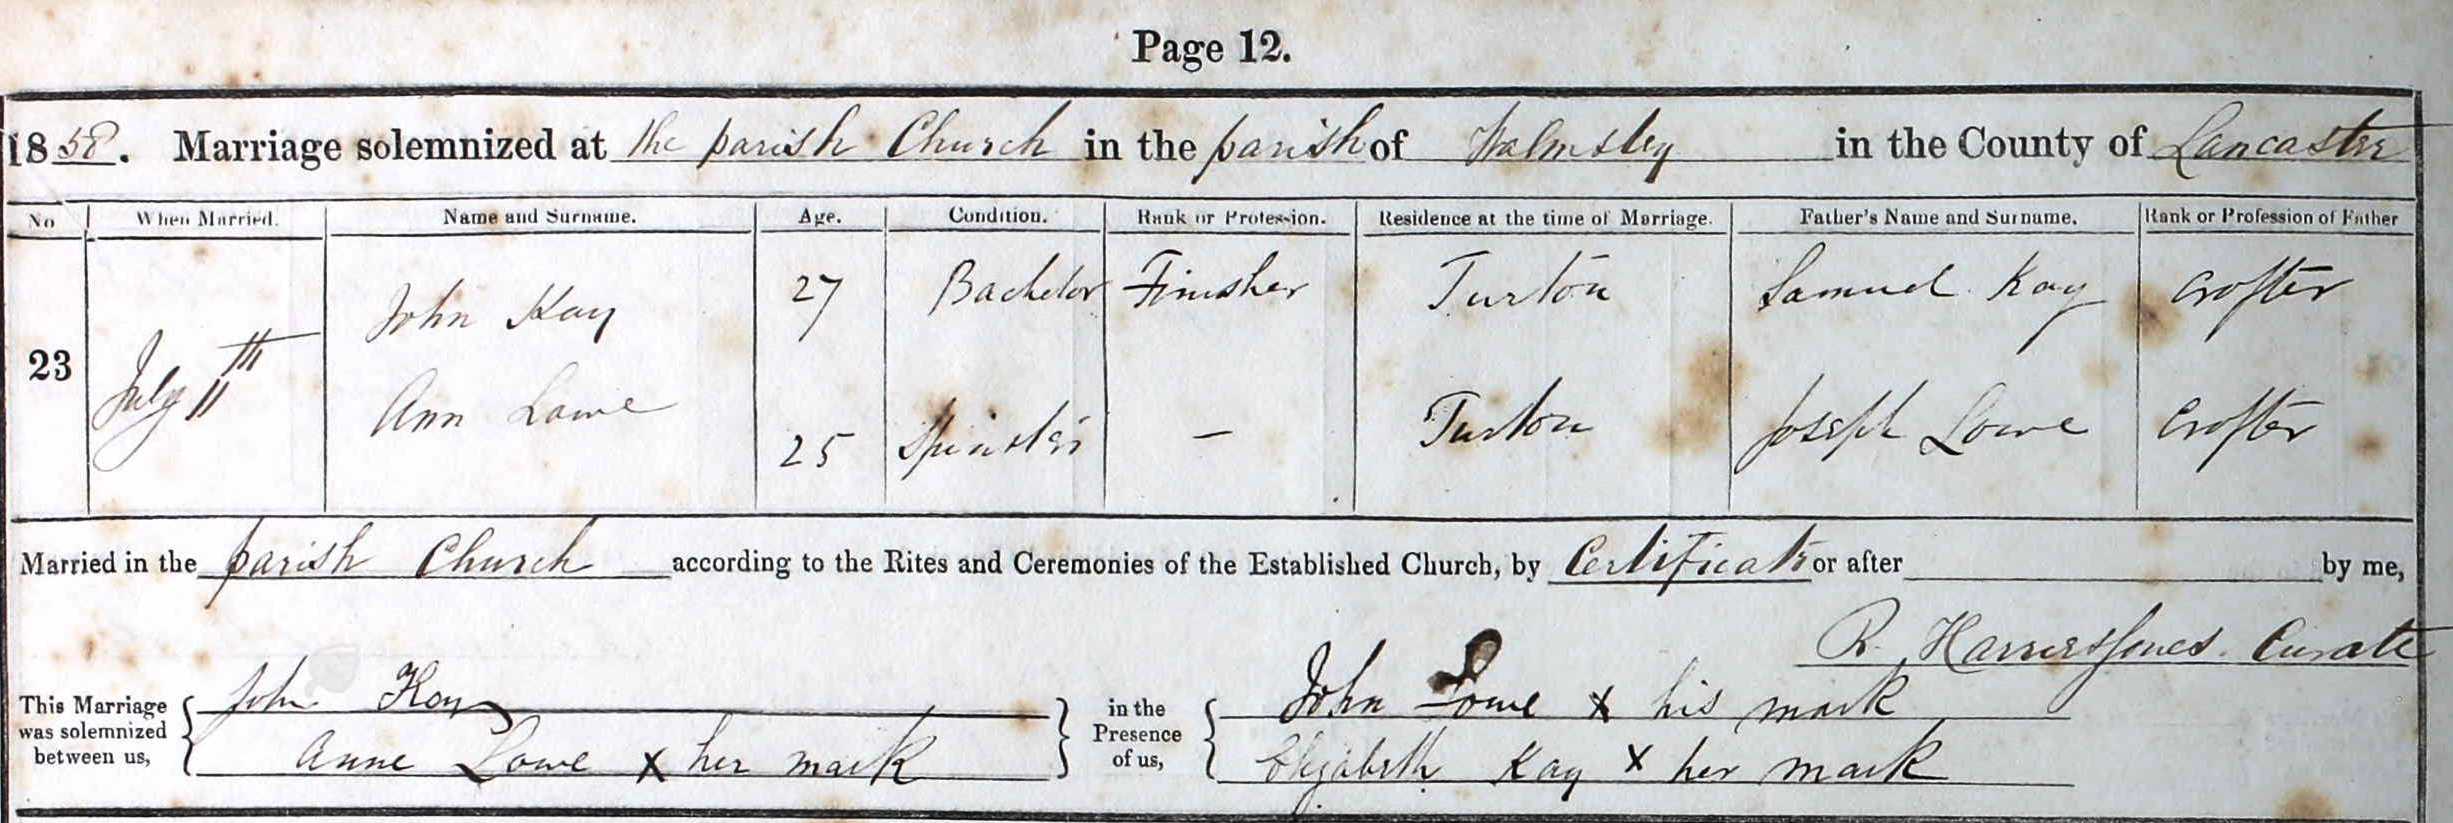 Page 12.
1858. Marriage solemnized at the parish Church in the parish of Walmsley in the County of Lancaster
No When Married. Name and Surname. Age. Condition. Rank or Profession. Residence at the time of Marriage. Father's Name and Surname. Rank or Profession of Father
23 July 11th
John Kay 27 Bachelor Finisher Turton Samuel Kay Crofter
Ann Lowe 25 Spinster – Turton Joseph Lowe Crofter
Married in the parish Church according to the Rites and Ceremonies of the Established Church, by Certificate or after by me,
R. Jones. Curate
This Marriage was solemnized between us, John Kay
Anne Lowe x her mark
in the Presence of us, John Lowe x his mark
Elizabeth Kay x her mark